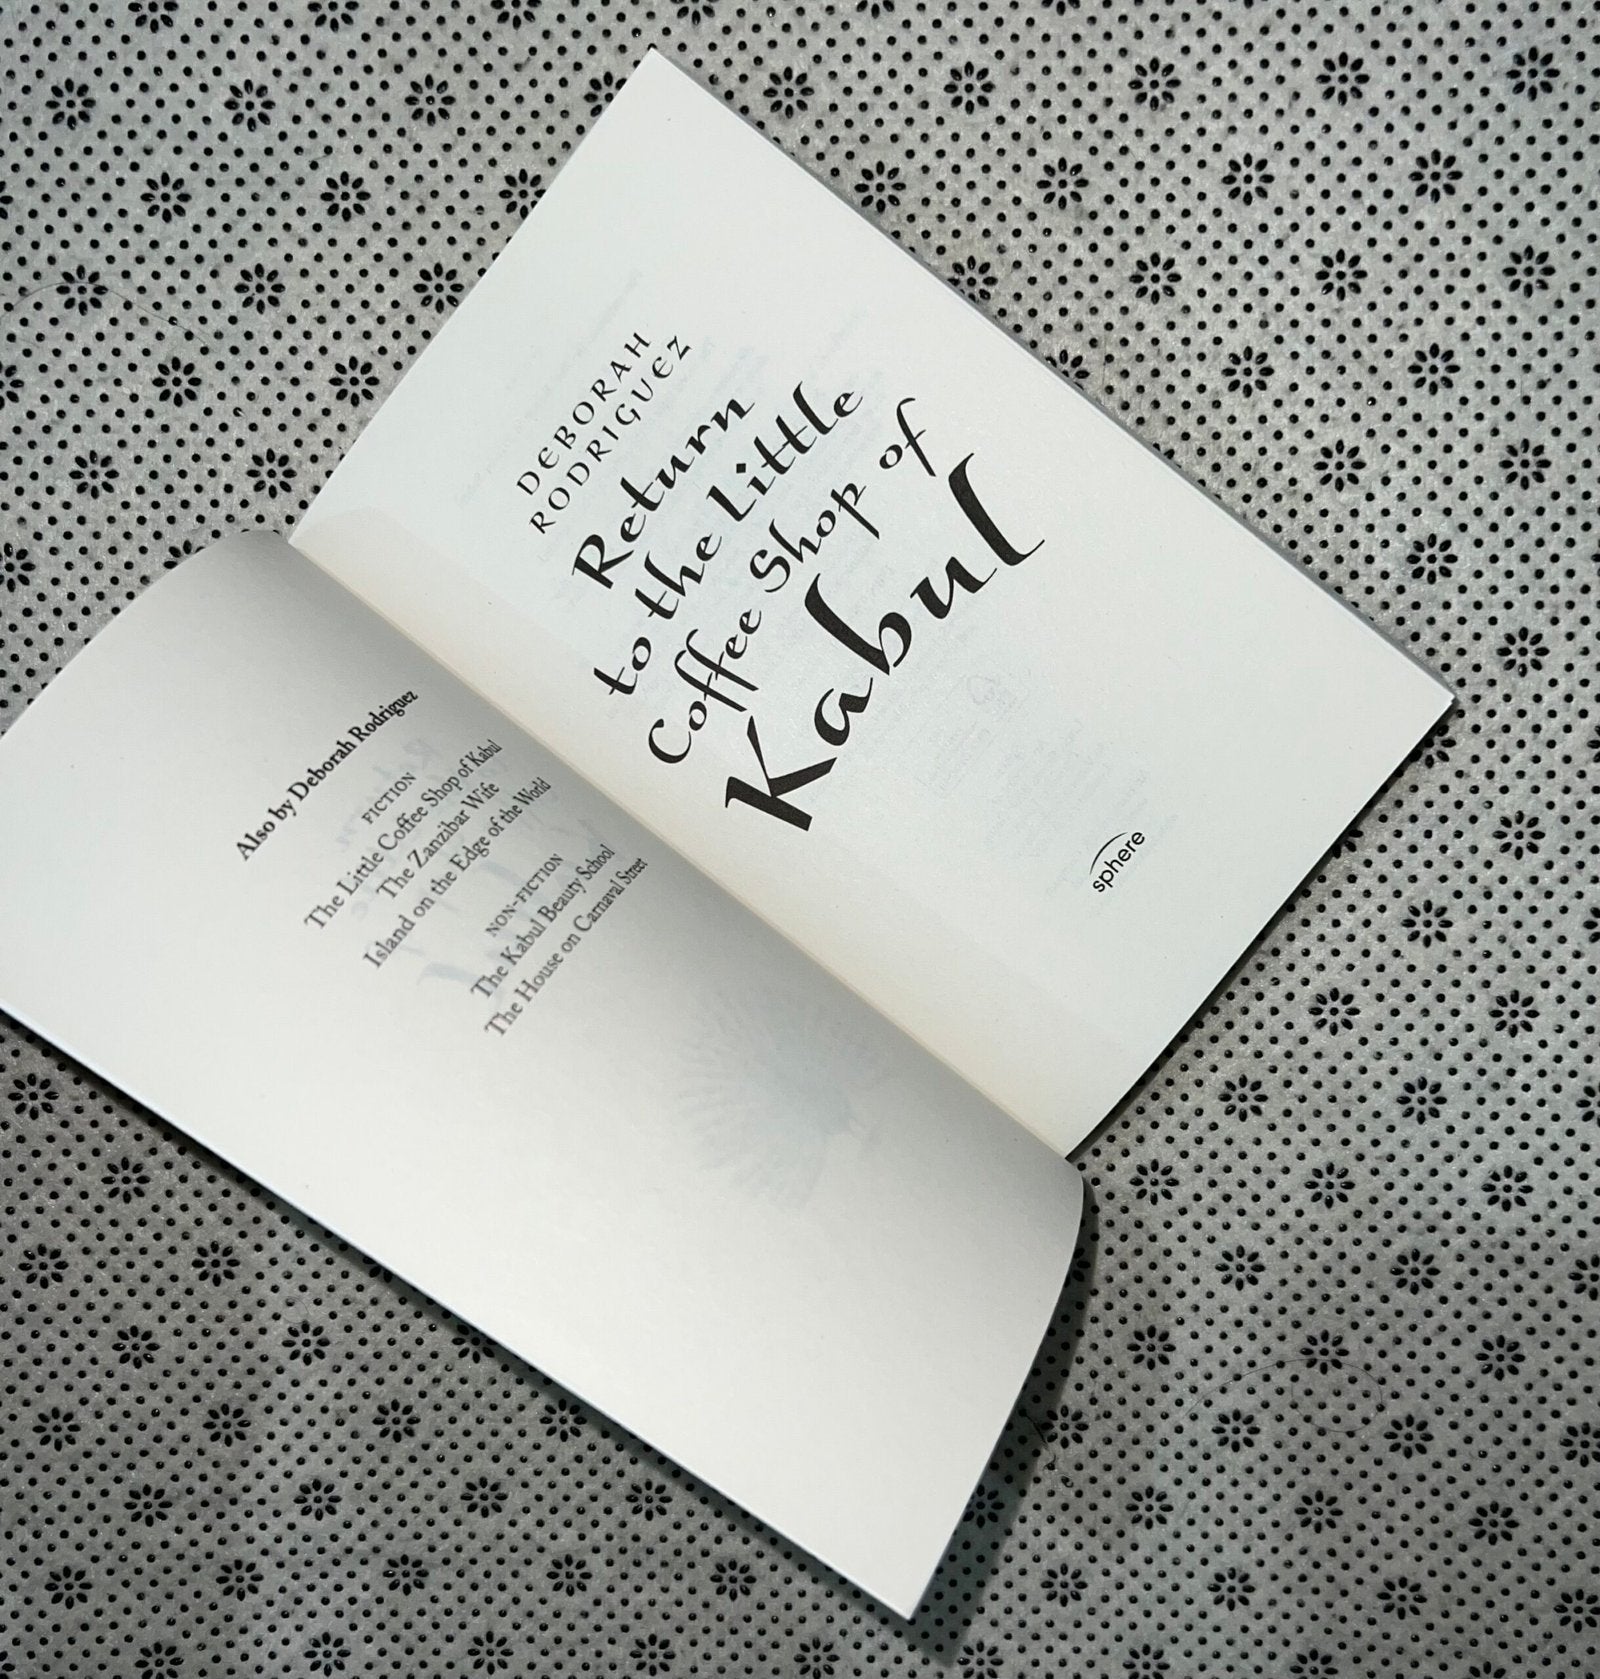 Also by Deborah Rodriguez
FICTION
The Little Coffee Shop of Kabul
The Zanzibar Wife
Island on the Edge of the World
NON-FICTION
The Kabul Beauty School
The House on Carnaval Street
DEBORAH
RODRIGUEZ
Return
to the Little
Coffee Shop of
Kabul
sphere